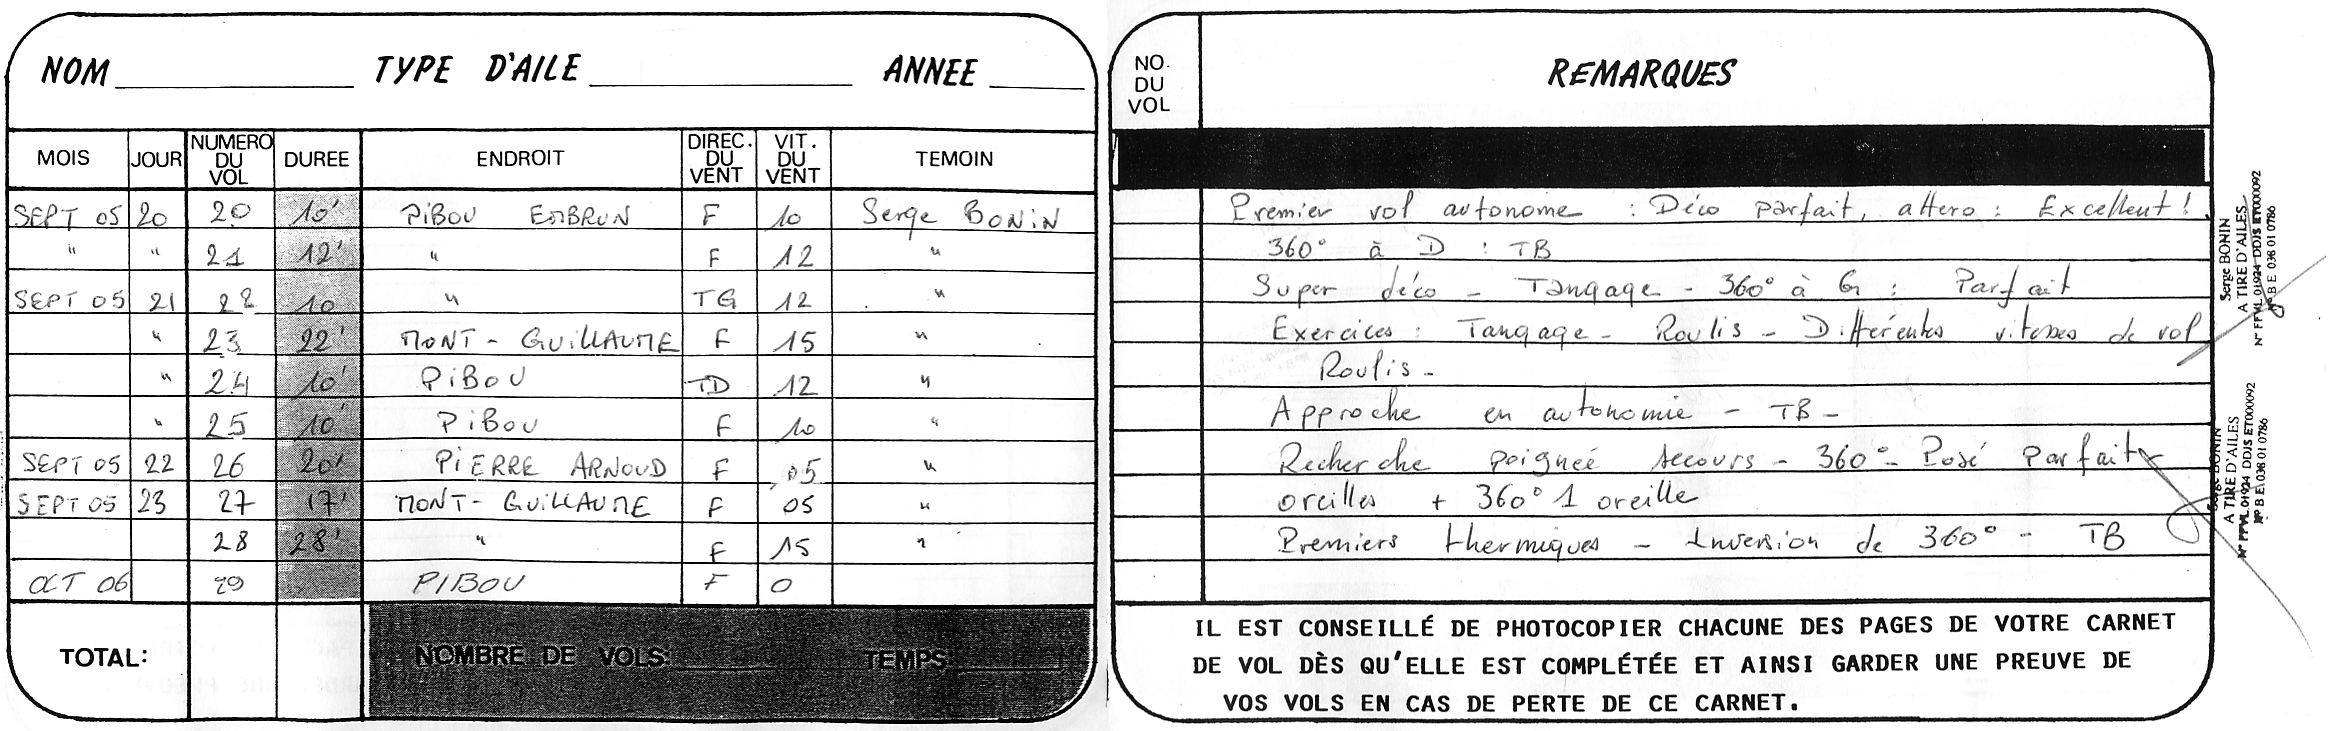 NOM TYPE D'AILE ANNEE
MOIS JOUR NUMERO DU VOL DUREE ENDROIT DIREC. DU VENT VIT. DU VENT TEMOIN
SEPT 05 20 20 10' PIBOU EMBRUN F 10 Serge BONIN
" " 21 12' " F 12 "
SEPT 05 21 22 10 " TG 12 "
" 23 22' MONT-GUILLAUME F 15 "
" 24 10' PIBOU TD 12 "
" 25 10' PIBOU F 10 "
SEPT 05 22 26 20' PIERRE ARNOUD F 05 "
SEPT 05 23 27 17' MONT-GUILLAUME F 05 "
28 28' " F 15 "
OCT 06 29 PIBOU F 0
TOTAL: NOMBRE DE VOLS: TEMPS:
NO. DU VOL REMARQUES
Premier vol autonome : Déco parfait, attero : Excellent !
360° à D : TB
Super déco - Tangage - 360° à G : Parfait
Exercices : Tangage - Roulis - Différentes vitesses de vol
Roulis -
Approche en autonomie - TB -
Recherche poignée secours - 360° - Posé parfait
oreilles + 360° 1 oreille
Premiers thermiques - Inversion de 360° - TB
IL EST CONSEILLÉ DE PHOTOCOPIER CHACUNE DES PAGES DE VOTRE CARNET
DE VOL DÈS QU'ELLE EST COMPLÉTÉE ET AINSI GARDER UNE PREUVE DE
VOS VOLS EN CAS DE PERTE DE CE CARNET.
Serge BONIN
A TIRE D'AILES
N° FFVL 01924 DDJS ET000092
N° B E 038 01 0786
Serge BONIN
A TIRE D'AILES
N° FFVL 01924 DDJS ET000092
N° B E 038 01 0786